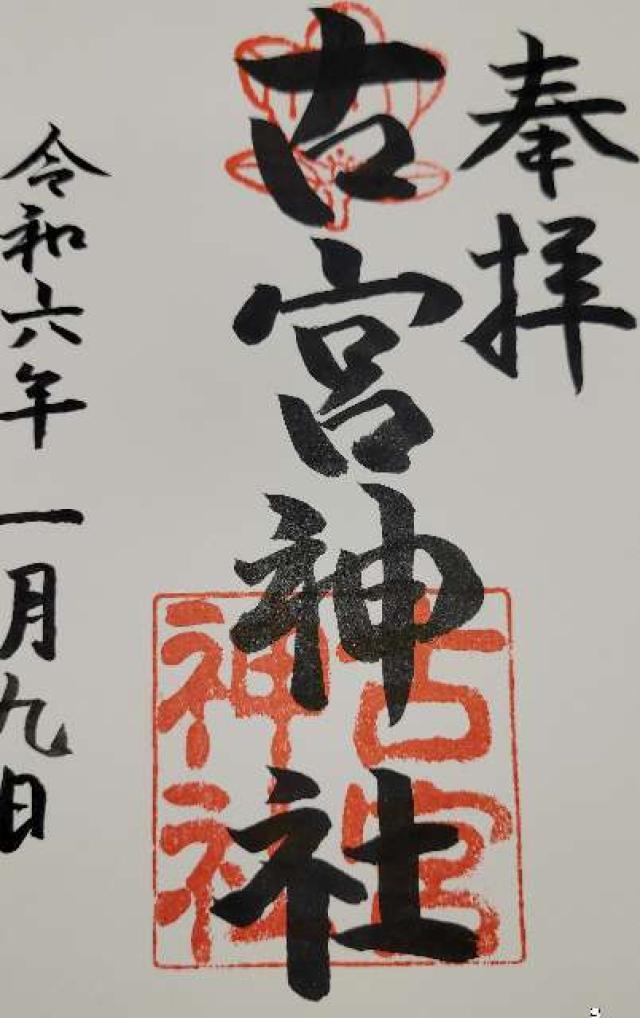 奉拝
古宮神社
古宮
神社
令和六年一月九日